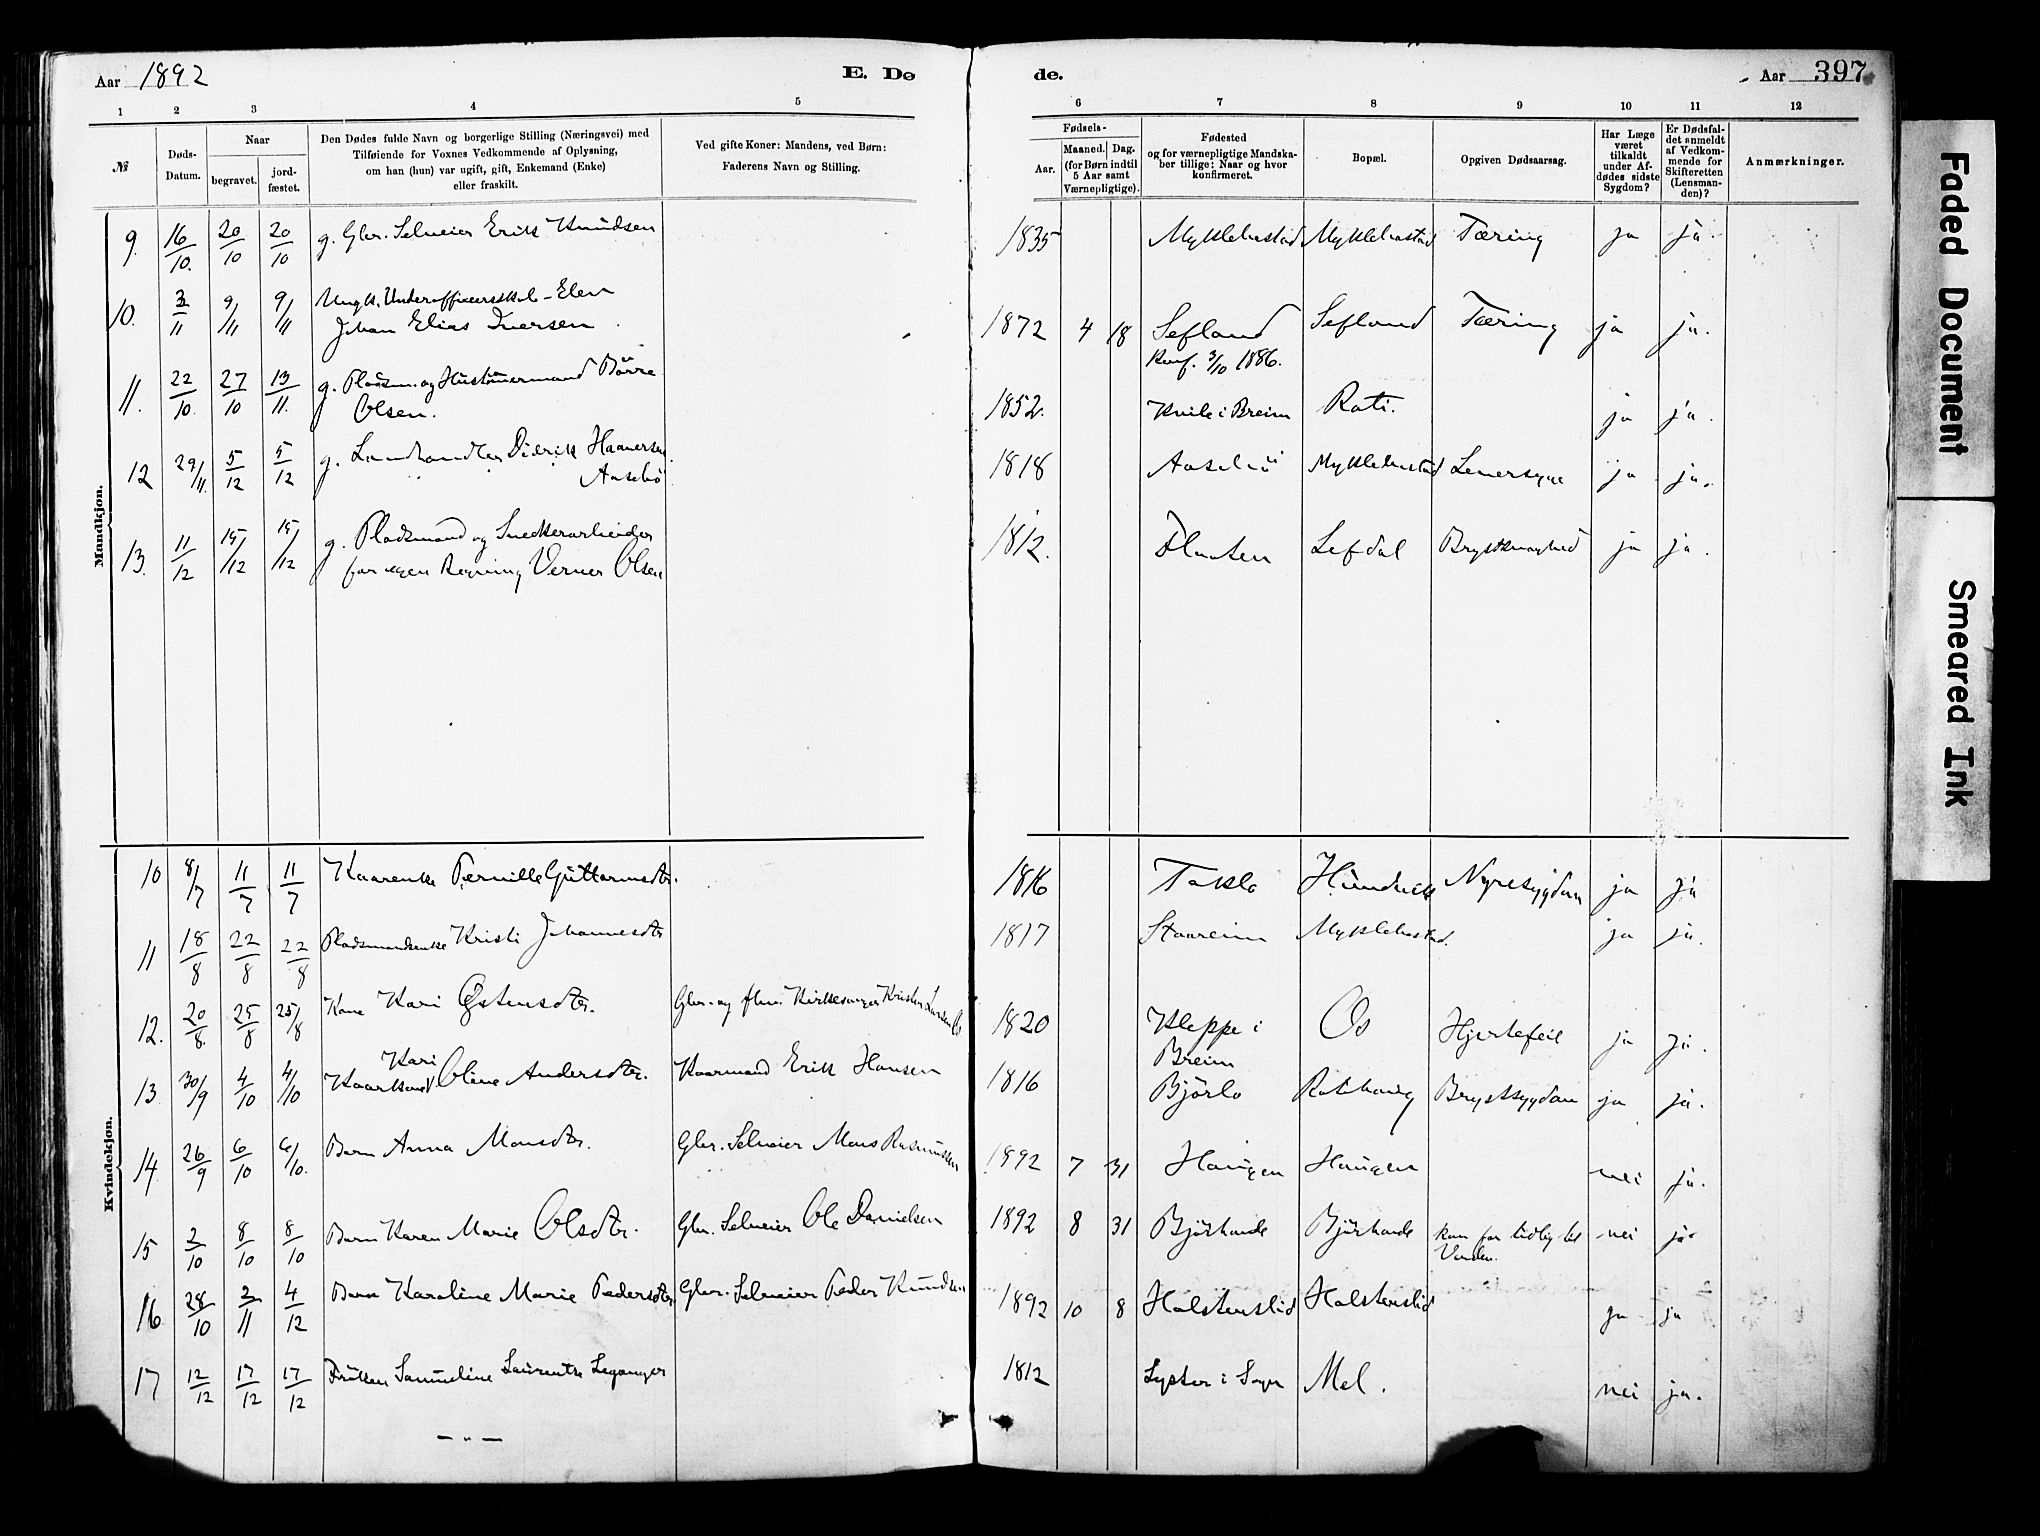 Aar 1892 E. Dø
1 2 3 4 5
№ Døds-Datum. Naar begravet. jordfæstet.
Den Dødes fulde Navn og borgerlige Stilling (Næringsvei) med
Tilføiende for Voxnes Vedkommende af Oplysning,
om han (hun) var ugift, gift, Enkemand (Enke)
eller fraskilt.
Ved gifte Koner: Mandens, ved Børn:
Faderens Navn og Stilling.
de. Aar 397
6 7 8 9 10 11 12
Fødsels-
Aar. Maaned. Dag.
(for Børn indtil
5 Aar samt
Værnepligtige).
Fødested
og for værnepligtige Mandska-
ber tillige: Naar og hvor
konfirmeret.
Bopæl.
Opgiven Dødsaarsag.
Har Læge
været
tilkaldt
under Af-
dødes sidste
Sygdom?
Er Dødsfal-
det anmeldt
af Vedkom-
mende for
Skifteretten
(Lensman-
den)?
Anmærkninger.
Mandkjøn.
9. 16/10. 20/10 20/10 g. Gbr. Selveier Erik Knudsen 1835 Myklebustad Myklebustad Tæring ja ja.
10. 3/11 9/11 9/11 Ungk. Underofficersskole-Elev
Johan Elias Iversen 1872 4 18 Sefland Sefland Tæring ja ja.
Konf. 3/10 1886.
11. 22/10. 27/10 13/11. g. Pladsm. og Hustømmermand Børre
Olsen. 1852. Kvile i Breim Roti. ja ja.
12 29/11. 5/12 5/12 g. Landhandler Didrik Haaversen
Aasebø 1818 Aasebø Myklebustad Leversyge ja ja.
13. 11/12 15/12 15/12 g. Pladsmand og Snedkerarbeider
for egen Regning Verner Olsen 1812. Lefdal Brystsvaghed ja ja.
Kvindekjøn.
10 8/7 11/7 11/7 Kaarenke Pernille Guttormsdtr. 1816 Taklo Hundeik Nyresygdom ja ja
11 18/8 22/8 22/8 Pladsmandsenke Kristi Johannesdtr 1817 Staareim Myklebustad. ja ja.
12. 20/8. 25/8 25/8 Kone Kari Østensdtr. Gbr. og fhv. Kirkesanger Kristen Larsen Os 1820 Kleppe i
Breim Os Hjertefeil ja ja.
13 30/9 4/10 4/10 Kaarkone Kari Oline Andersdtr. Kaarmand Erik Hansen 1816 Bjørlo Rotihaug Brystsygdom ja ja.
14 26/9 6/10 6/10. Barn Anna Monsdtr. Gbr. Selveier Mons Rasmussen 1892 7 31 Haugen Haugen nei ja.
15 2/10 8/10 8/10 Barn Karen Marie Olsdtr. Gbr. Selveier Ole Danielsen 1892 8 31 Bjørhovde Bjørhovde kom for tidlig til
Verden. nei ja
16 28/10 2/11 4/12 Barn Karoline Marie Pedersdtr. Gbr. Selveier Peder Knudsen 1892 10 8 Holstenslid Holstenslid ja ja
17 12/12 17/12 17/12 Frøken Samueline Laurentze Leganger 1812 Lyster i Sogn Mel. nei ja.
— „ —
Faded Document
Smeared Ink